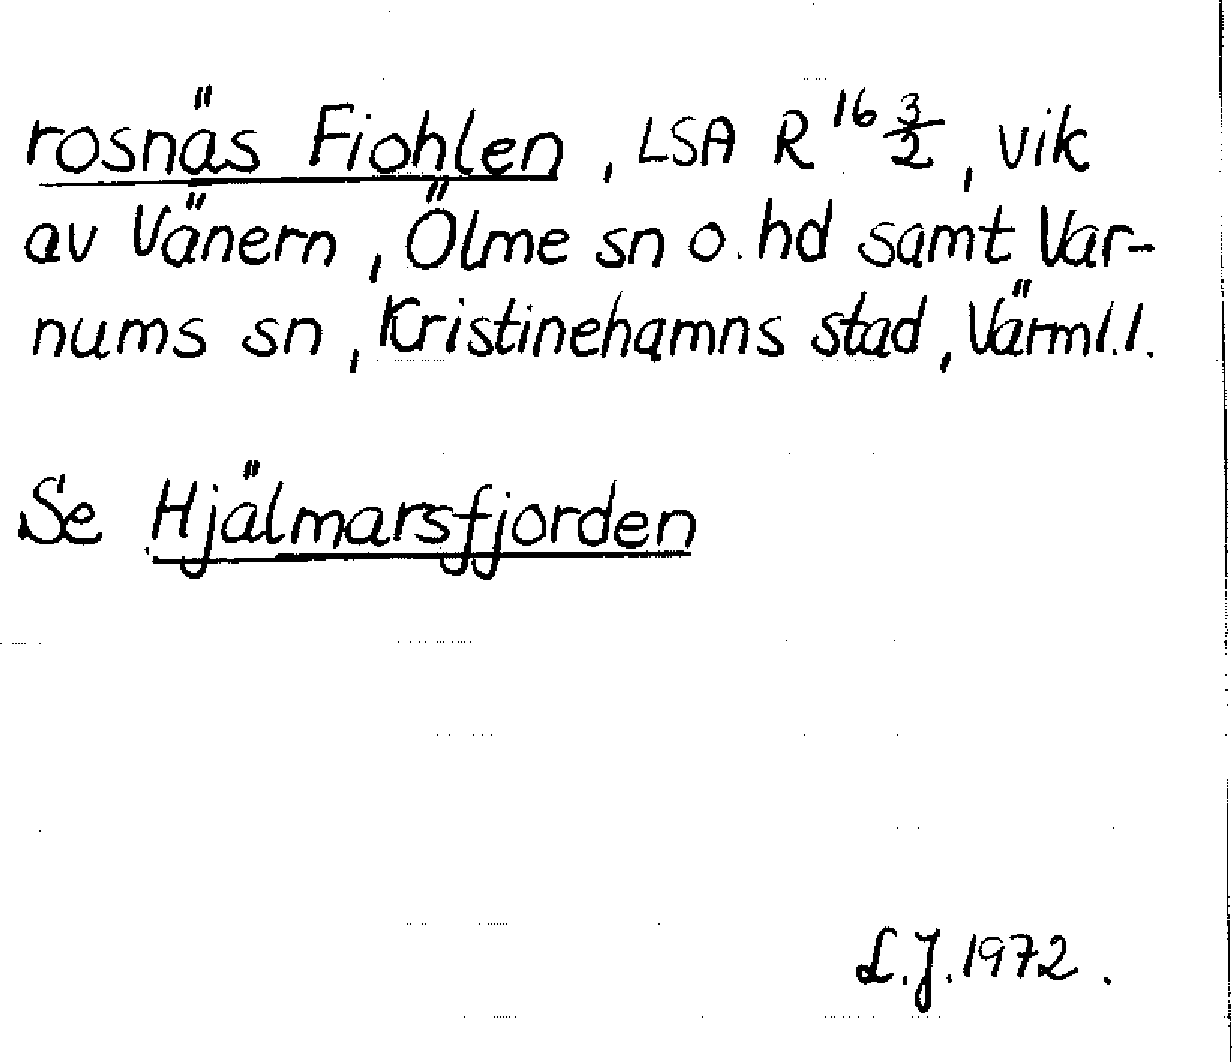 rosnäs Fiohlen, LSA R 16 3/2, vik
av Vänern, Ölme sn o. hd samt Var-
nums sn, Kristinehamns stad, Värml.l.
Se Hjälmarsfjorden
L.J. 1972.